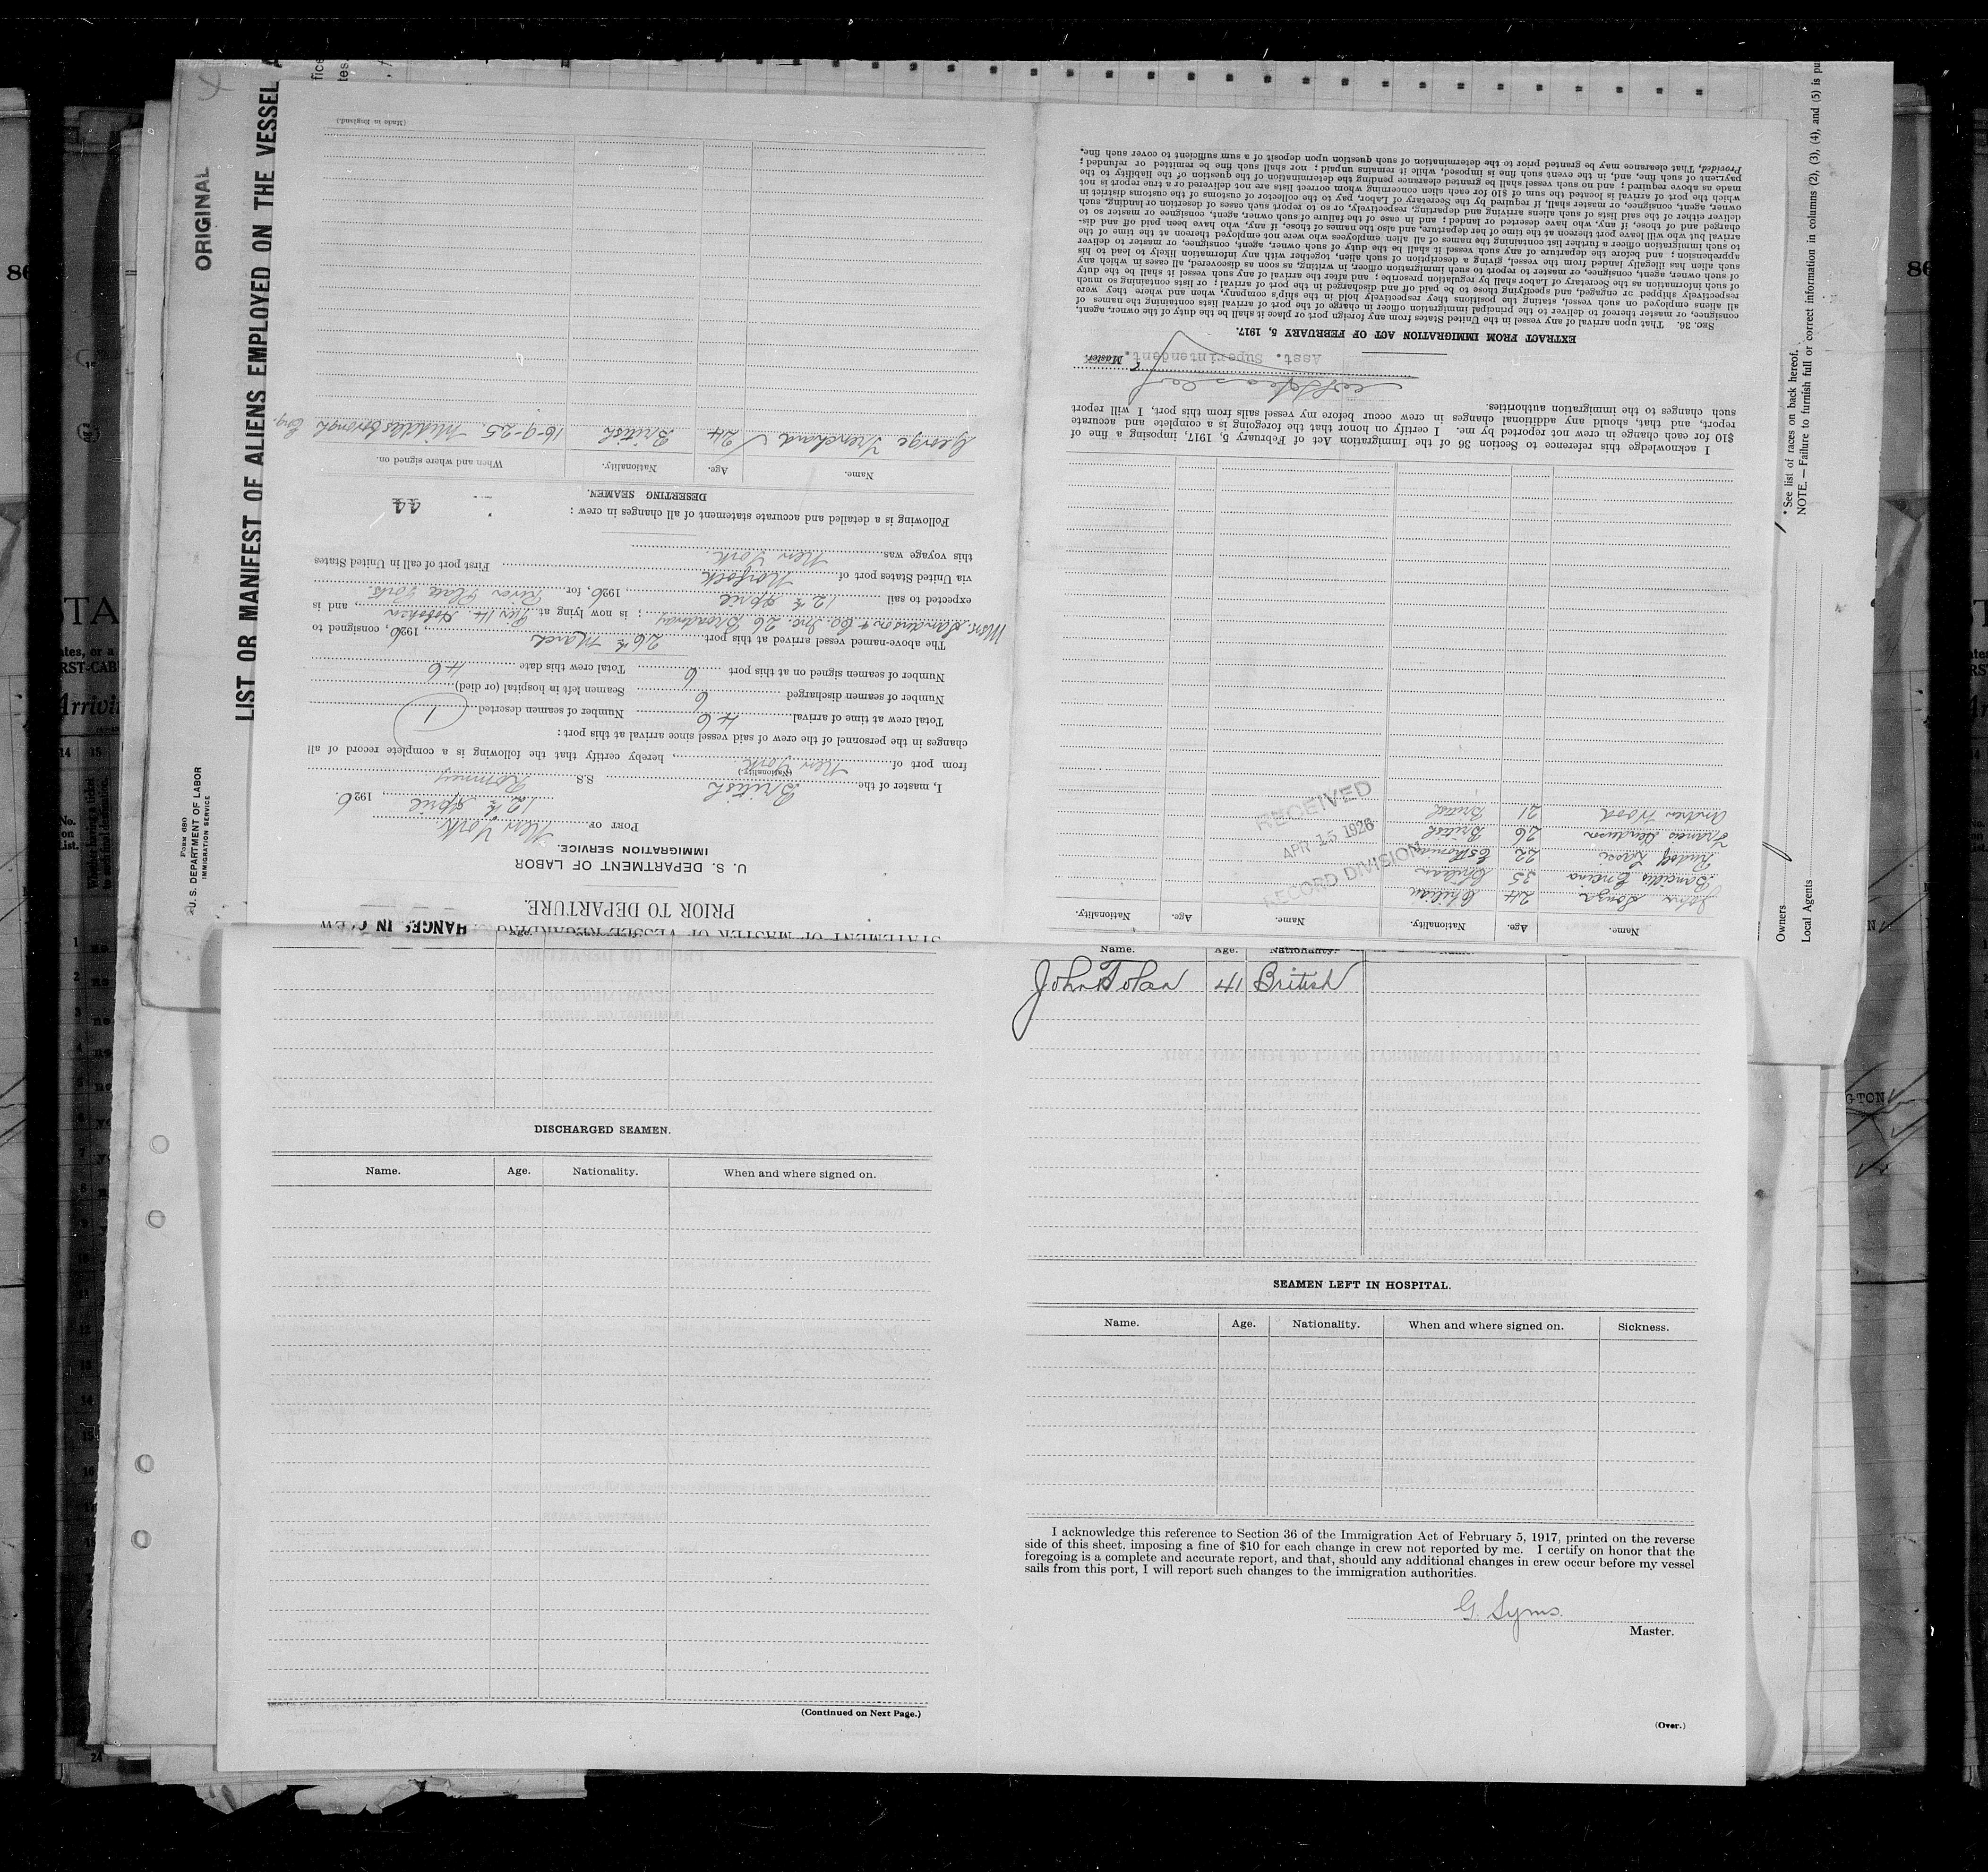 ORIGINAL
LIST OR MANIFEST OF ALIENS EMPLOYED ON THE VESSEL
FORM 680
U. S. DEPARTMENT OF LABOR
IMMIGRATION SERVICE
* See list of races on back hereof.
NOTE. — Failure to furnish full or correct information in columns (2), (3), (4), and (5) is pu
Owners
Local Agents
STATEMENT OF MASTER OF VESSEL REGARDING CHANGES IN CREW
PRIOR TO DEPARTURE.
U. S. DEPARTMENT OF LABOR
IMMIGRATION SERVICE.
PORT OF New York
12th April, 1926.
I, master of the British S.S. Romney
(Nationality.)
from port of New York, hereby certify that the following is a complete record of all
changes in the personnel of the crew of said vessel since arrival at this port:
Total crew at time of arrival 46 Number of seamen deserted 1
Number of seamen discharged 6 Seamen left in hospital (or died)
Number of seamen signed on at this port 6 Total crew this date 46
The above-named vessel arrived at this port 26th March, 1926, consigned to
Mssrs. Sanderson & Co. Inc. 26 Broadway; is now lying at Pier 14 Hoboken, and is
expected to sail 12th April, 1926, for River Plate Ports
via United States port of Norfolk First port of call in United States
this voyage was New York.
Following is a detailed and accurate statement of all changes in crew:
DESERTING SEAMEN.
Name. Age. Nationality. When and where signed on.
George Trenchard 24 British 16-9-25 Middlesborough Eng.
(Made in England.)
Name. Age. Nationality. Name. Age. Nationality.
John Souza 24 Chilian
Bancillo Encina 35 Chilean
Rudolf Rossi 22 Esthonian
Francis Henderson 26 British
Andrew Wood 21 British
RECEIVED
APR 15 1926
RECORD DIVISION
I acknowledge this reference to Section 36 of the Immigration Act of February 5, 1917, imposing a fine of
$10 for each change in crew not reported by me. I certify on honor that the foregoing is a complete and accurate
report, and that, should any additional changes in crew occur before my vessel sails from this port, I will report
such changes to the immigration authorities.
Asst. Superintendent. Master.
EXTRACT FROM IMMIGRATION ACT OF FEBRUARY 5, 1917.
SEC. 36. That upon arrival of any vessel in the United States from any foreign port or place it shall be the duty of the owner, agent,
consignee, or master thereof to deliver to the principal immigration officer in charge of the port of arrival lists containing the names of
all aliens employed on such vessel, stating the positions they respectively hold in the ship's company, when and where they were
respectively shipped or engaged, and specifying those to be paid off and discharged in the port of arrival; or lists containing so much
of such information as the Secretary of Labor shall by regulation prescribe; and after the arrival of any such vessel it shall be the duty
of such owner, agent, consignee, or master to report to such immigration officer, in writing, as soon as discovered, all cases in which any
such alien has illegally landed from the vessel, giving a description of such alien, together with any information likely to lead to his
apprehension; and before the departure of any such vessel it shall be the duty of such owner, agent, consignee, or master to deliver
to such immigration officer a further list containing the names of all alien employees who were not employed thereon at the time of the
arrival but who will leave port thereon at the time of her departure, and also the names of those, if any, who have been paid off and dis-
charged and of those, if any, who have deserted or landed; and in case of the failure of such owner, agent, consignee or master so to
deliver either of the said lists of such aliens arriving and departing, respectively, or so to report such cases of desertion or landing, such
owner, agent, consignee, or master shall, if required by the Secretary of Labor, pay to the collector of customs of the customs district in
which the port of arrival is located the sum of $10 for each alien concerning whom correct lists are not delivered or a true report is not
made as above required; and no such vessel shall be granted clearance pending the determination of the question of the liability to the
payment of such fine, and, in the event such fine is imposed, while it remains unpaid; nor shall such fine be remitted or refunded;
Provided, That clearance may be granted prior to the determination of such question upon deposit of a sum sufficient to cover such fine.
DISCHARGED SEAMEN.
Name. Age. Nationality. When and where signed on.
(Continued on Next Page.)
Name. Age. Nationality. Name.
John Tolan 41 British
SEAMEN LEFT IN HOSPITAL.
Name. Age. Nationality. When and where signed on. Sickness.
I acknowledge this reference to Section 36 of the Immigration Act of February 5, 1917, printed on the reverse
side of this sheet, imposing a fine of $10 for each change in crew not reported by me. I certify on honor that the
foregoing is a complete and accurate report, and that, should any additional changes in crew occur before my vessel
sails from this port, I will report such changes to the immigration authorities.
G. Syms.
Master.
(Over.)